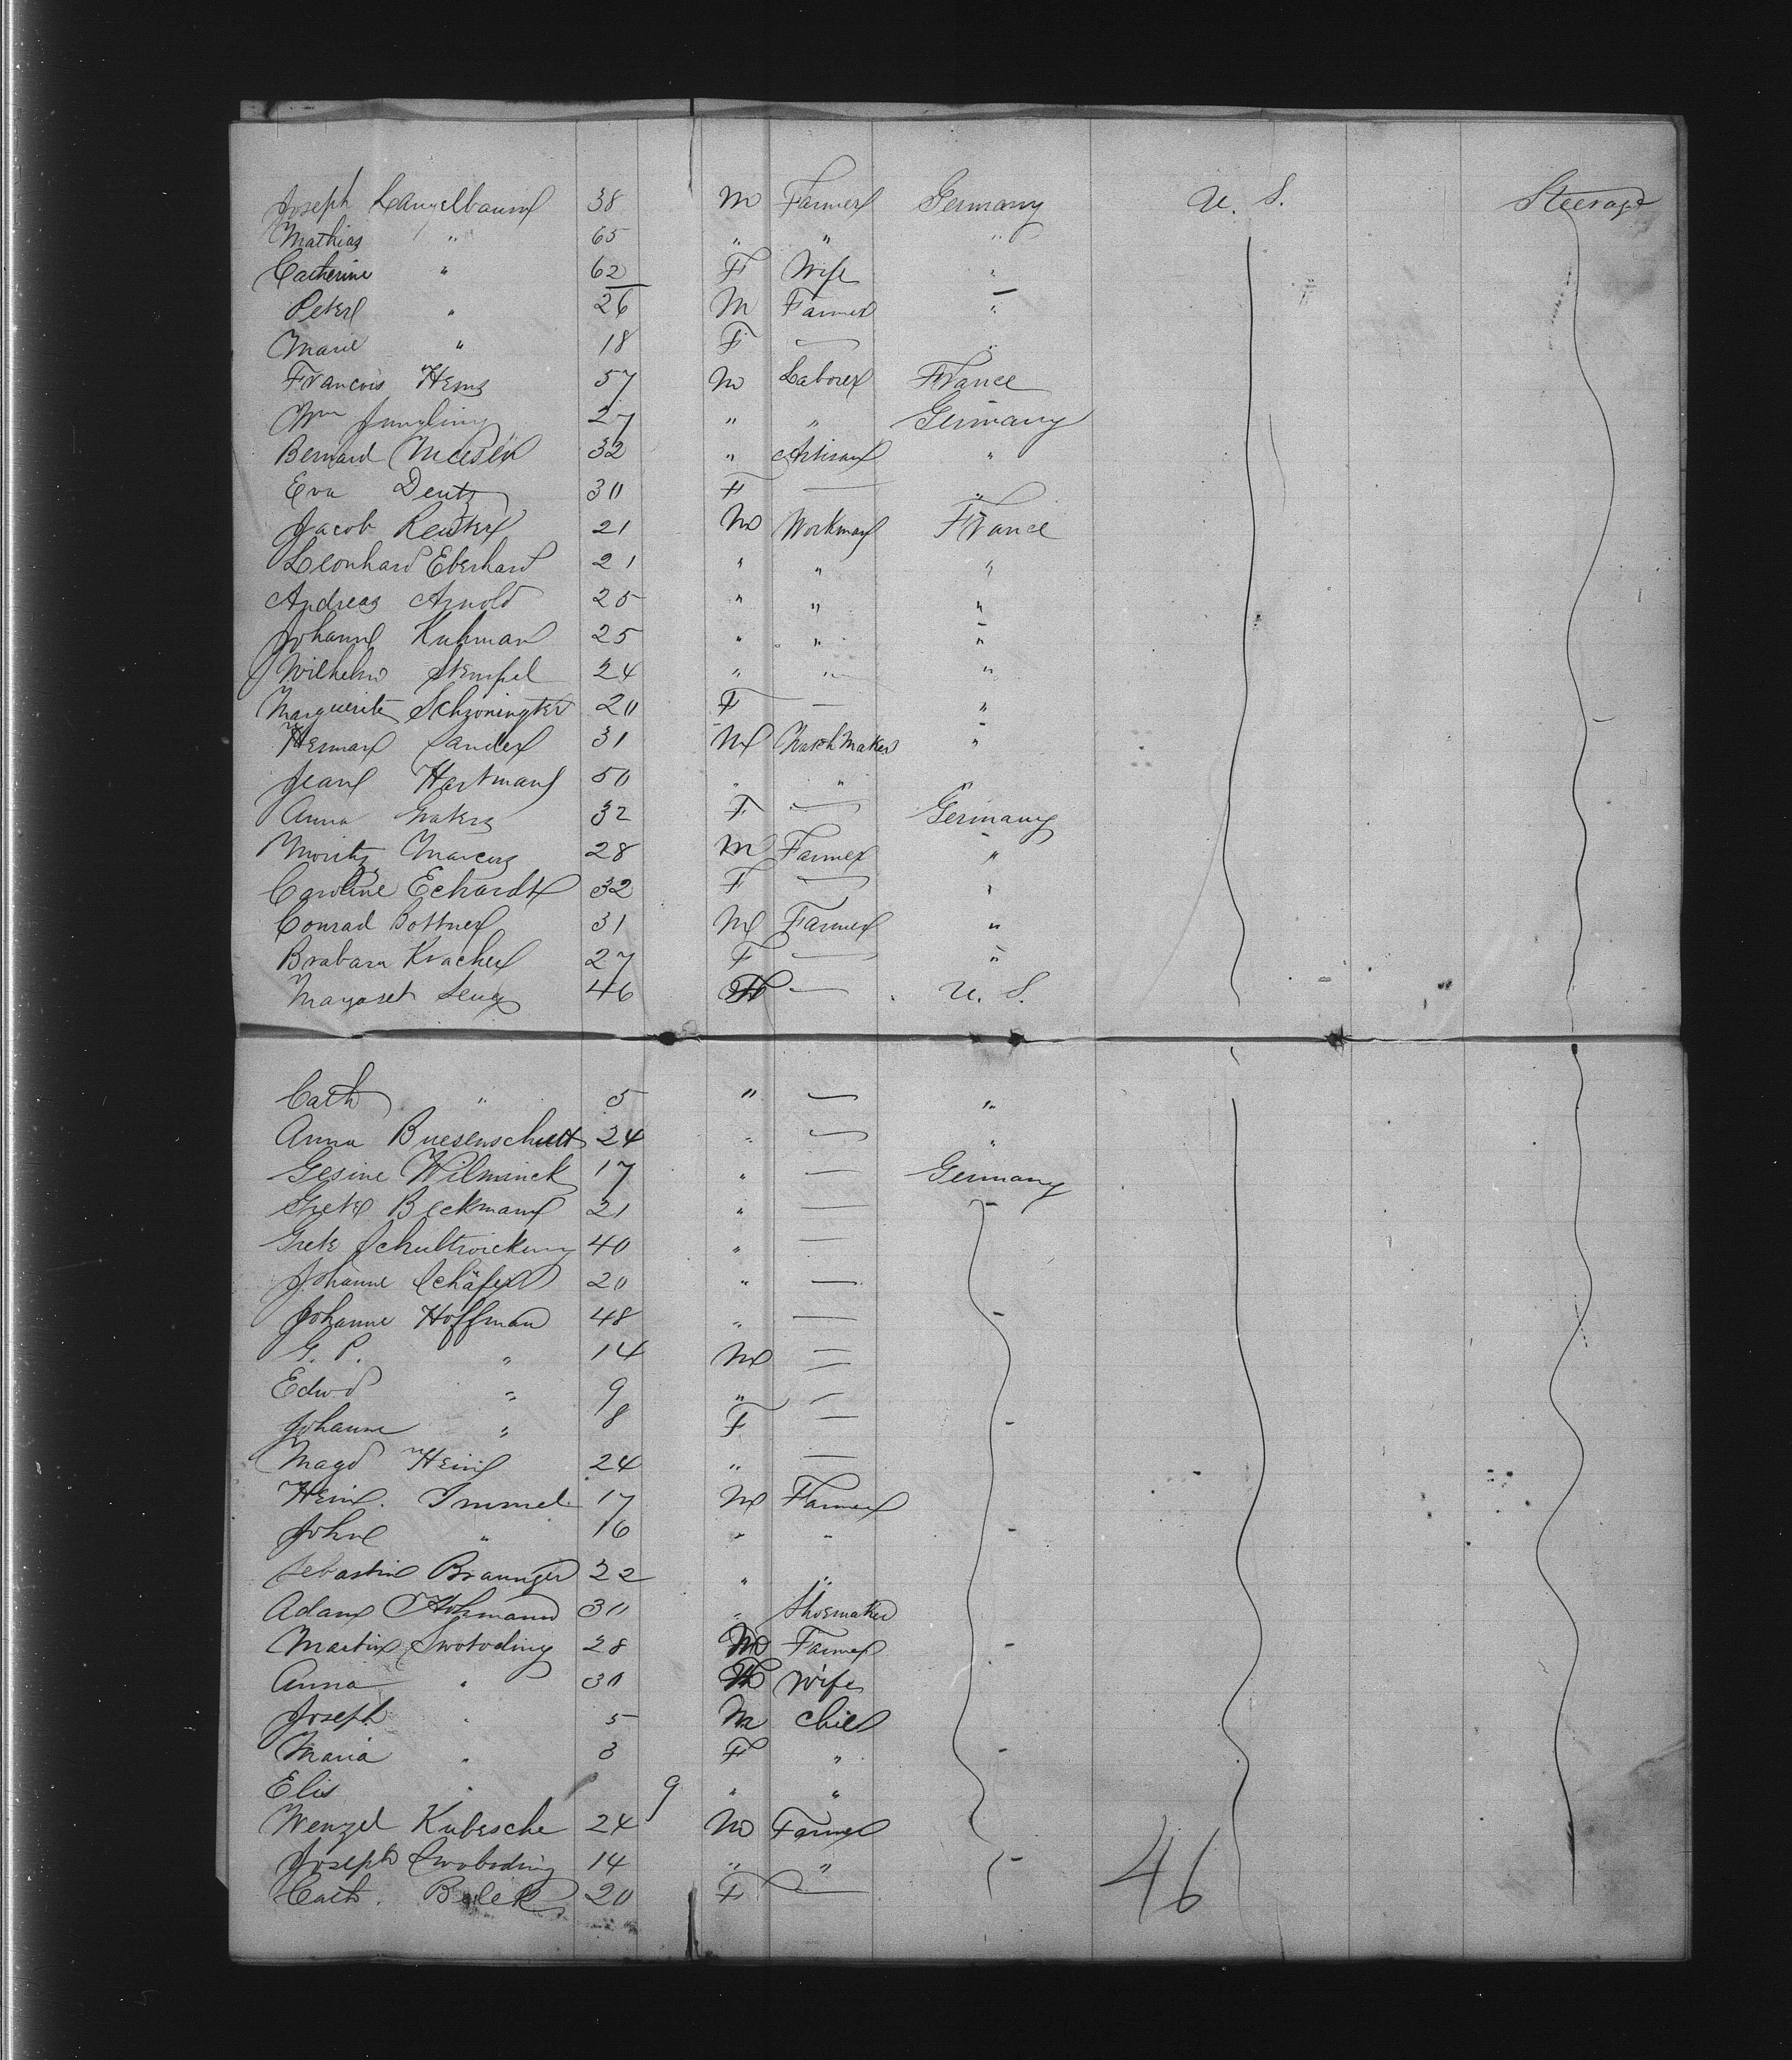 Joseph Langelbaum 38 M Farmer Germany U. S. Steerage
Mathias " 65 " " "
Catherine " 62 F Wife "
Peter " 26 M Farmer "
Marie " 18 F — "
Francois Hems 57 M Laborer France
Wm Jungling 27 " " Germany
Bernard 32 " Artisan "
Eva Deutz 30 F — "
Jacob Reuter 21 M Workman France
Leonhard Eberhard 21 " " "
Andreas Arnold 25 " " "
Johann Kuhman 25 " " "
Wilhelm Stempel 24 " " "
Marguerite 20 F — "
Herman Sander 31 M Watch Maker "
Jean Hartman 50 " " "
Anna 32 F — Germany
Moritz Marcus 28 M Farmer "
Caroline Echardt 32 F — "
Conrad Bottner 31 M Farmer "
Brabara Kracher 27 F — "
Margaret 46 F — U. S.
Cath " 5 " — "
Anna Buesenschutt 24 " — "
Gesine Wilminck 17 " — Germany
Grete Beckmann 21 " —
Grete 40 " —
Johanne Schäfer 20 " —
Johanne Hoffman 48 " —
G. P. " 14 M —
Edwd " 9 " —
Johanne " 8 F —
Magd Hein 24 " —
Hein. Immel 17 M Farmer
John " 16 " "
Sebastin Braunger 22 " "
Adam Hohmann 30 " Shoemaker
Martin Swoboding 28 M Farmer
Anna " 30 F Wife
Joseph " 5 M Child
Maria " 3 F "
Elis " 9 " "
Wenzel Kubesche 24 M Farmer
Joseph Swoboding 14 " "
Cath. Belek 20 F —
46